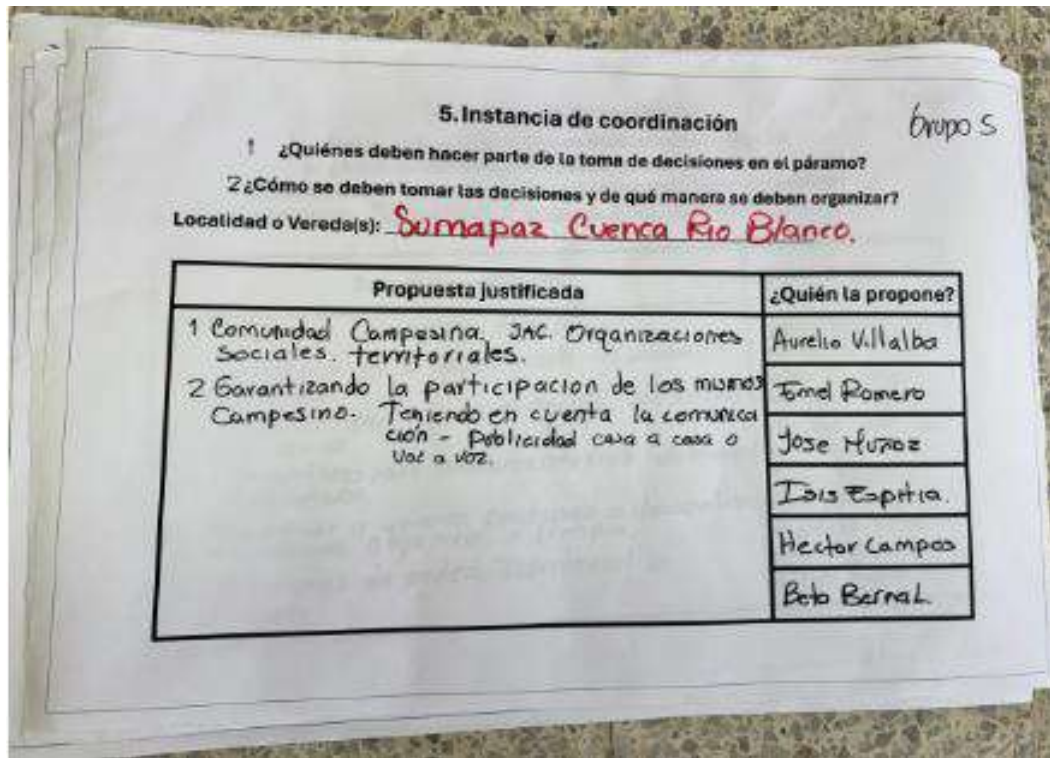 5. Instancia de coordinación
Grupo 5
1 ¿Quiénes deben hacer parte de la toma de decisiones en el páramo?
2 ¿Cómo se deben tomar las decisiones y de qué manera se deben organizar?
Localidad o Vereda(s): Sumapaz Cuenca Rio Blanco.
Propuesta justificada
¿Quién la propone?
1 Comunidad Campesina. JAC. Organizaciones
Sociales. territoriales.
2 Garantizando la participacion de los mismos
Campesino. Teniendo en cuenta la comunica
ción - Publicidad casa a casa o
Voz a voz.
Aurelio Villalba
Romero
Jose Muñoz
Isis Espitia.
Hector Campos
Beto Bernal.